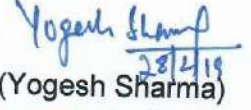 Yogesh Sharma
28/2/19
(Yogesh Sharma)